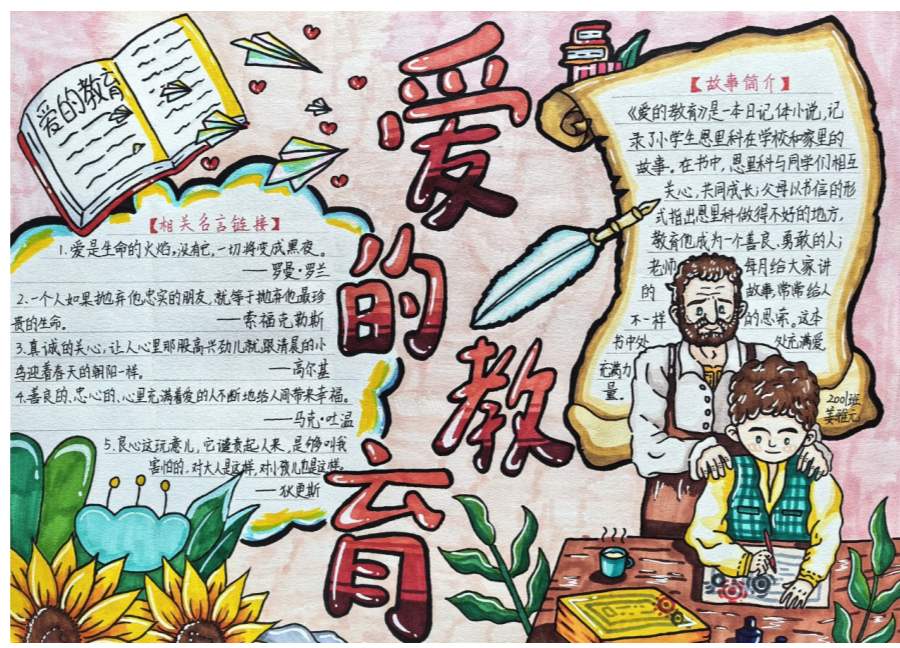 爱的教育
爱的教育
【相关名言链接】
1.爱是生命的火焰,没有它,一切将变成黑夜。
——罗曼·罗兰
2.一个人如果抛弃他忠实的朋友,就等于抛弃他最珍
贵的生命。 ——索福克勒斯
3.真诚的关心,让人心里那股高兴劲儿就跟清晨的小
鸟迎着春天的朝阳一样。 ——高尔基
4.善良的、忠心的、心里充满着爱的人不断地给人间带来幸福。
——马克·吐温
5.良心这玩意儿,它谴责起人来,是够叫我
害怕的,对大人是这样,对小孩儿也是这样。
——狄更斯
【故事简介】
《爱的教育》是一本日记体小说,记
录了小学生恩里科在学校和家里的
故事。在书中,恩里科与同学们相互
关心,共同成长;父母以书信的形
式指出恩里科做得不好的地方,
教育他成为一个善良、勇敢的人;
老师 每月给大家讲
的 故事,常常给人
不一样 的思索。这本
书中处 处充满爱
充满力
量。
2001班
姜雅元